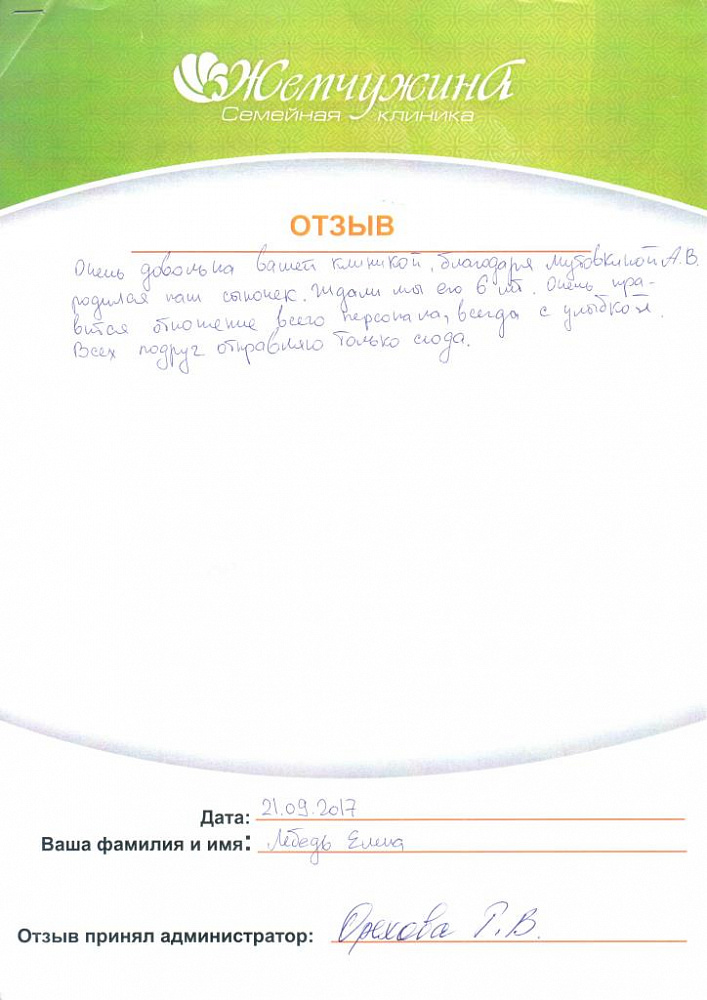 Жемчужина
Семейная клиника
ОТЗЫВ
Очень довольна вашей клиникой, благодаря Мутовкиной А.В.
родился наш сыночек. Ждали мы его 6 лет. Очень нра-
вится отношение всего персонала, всегда с улыбкой.
Всех подруг отправляю только сюда.
Дата: 21.09.2017
Ваша фамилия и имя: Лебедь Елена
Отзыв принял администратор: Орехова Т.В.